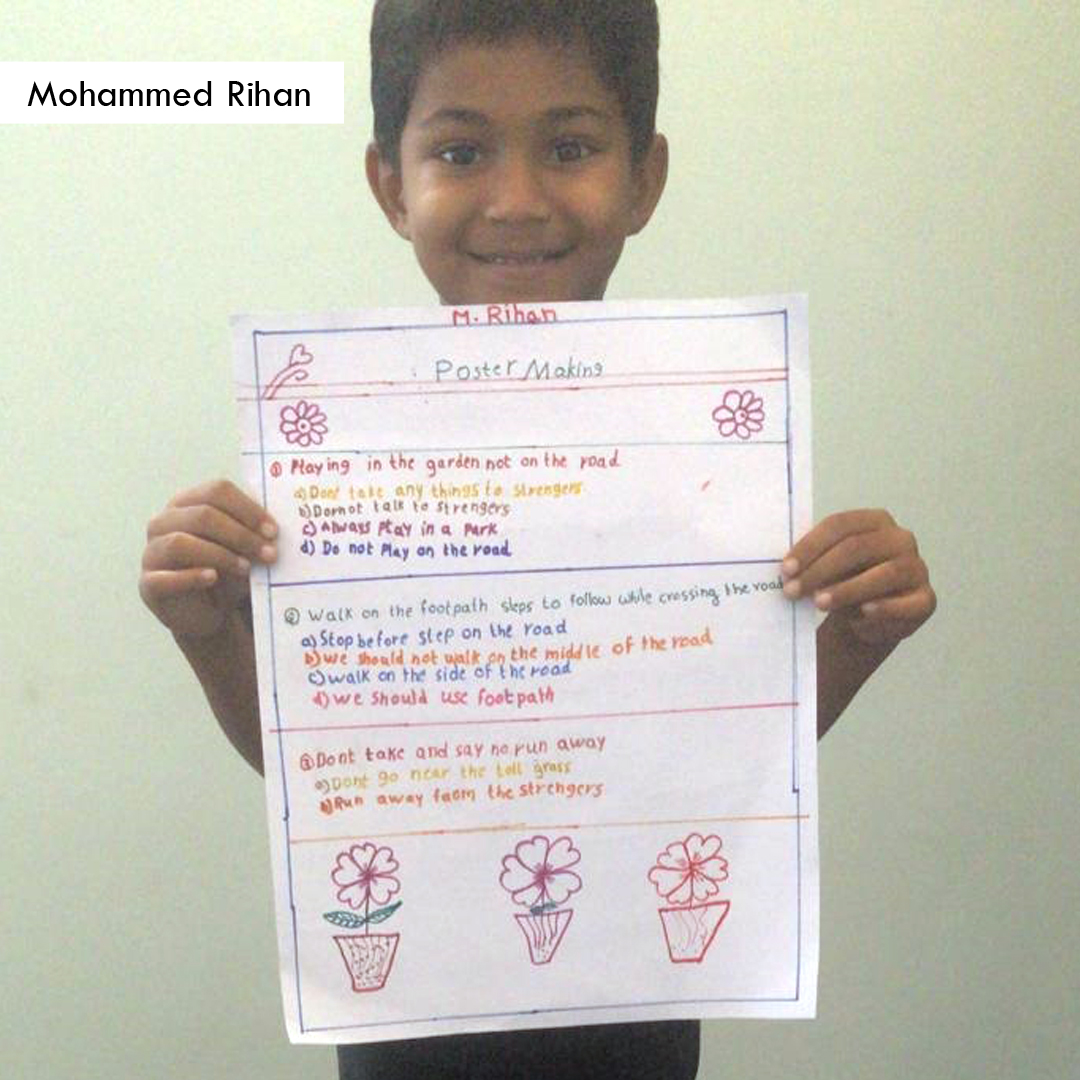 Mohammed Rihan
M. Rihan
Poster Making
① Playing in the garden not on the road
a) Dont take any things to strengers
b) Dornot talk to strengers
c) Always Play in a Park
d) Do not Play on the road
② Walk on the footpath steps to follow while crossing the road
a) Stop before step on the road
b) we should not walk on the middle of the road
c) walk on the side of the road
d) we should use footpath
③ Dont take and say no run away
a) Dont go near the tall grass
b) Run away faom the strengers